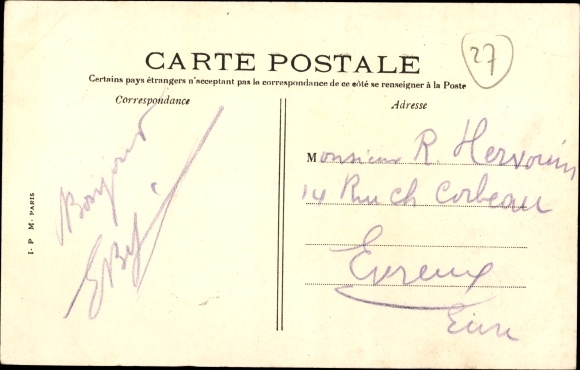 CARTE POSTALE
27
Certains pays étrangers n'acceptant pas la correspondance de ce côté se renseigner à la Poste
Correspondance
Adresse
Bonjour
Monsieur R. Hervouin
14 Rue Ch Corbeau
Evreux
Eure
I. P. M. PARIS